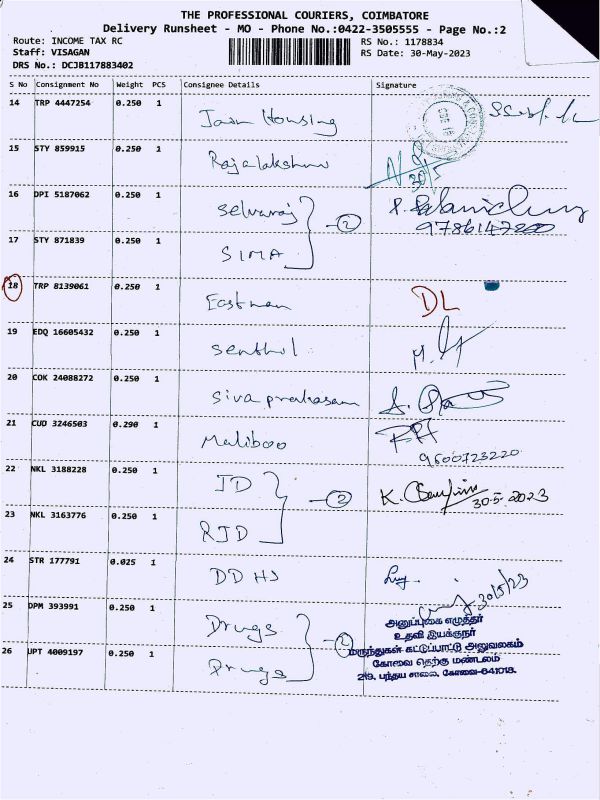 THE PROFESSIONAL COURIERS, COIMBATORE
Delivery Runsheet - MO - Phone No.:0422-3505555 - Page No.:2
Route: INCOME TAX RC
RS No.: 1178834
Staff: VISAGAN
RS Date: 30-May-2023
DRS No.: DCJB117883402
S No Consignment No Weight PCS Consignee Details Signature
14 TRP 4447254 0.250 1
Housing
15 STY 859915 0.250 1
Rajalakshmi
30/5
16 DPI 5187062 0.250 1
Selvaraj
2
9786147200
17 STY 871839 0.250 1
SIMA
18 TRP 8139061 0.250 1
Eastman DL
19 EDQ 16605432 0.250 1
Senthil
20 COK 24088272 0.250 1
Siva prakasam
21 CUD 3246503 0.290 1
Maliboo
9600723220
22 NKL 3188228 0.250 1
JD
2
K.
30-5-2023
23 NKL 3163776 0.250 1
RJD
24 STR 177791 0.025 1
DD HS
30/5/23
25 DPM 393991 0.250 1
Drugs
அனுப்புகை எழுத்தர்
உதவி இயக்குநர்
26 UPT 4009197 0.250 1
Drugs
2
மருந்துகள் கட்டுப்பாட்டு அலுவலகம்
கோவை தெற்கு மண்டலம்
219, பந்தய சாலை, கோவை-641018.